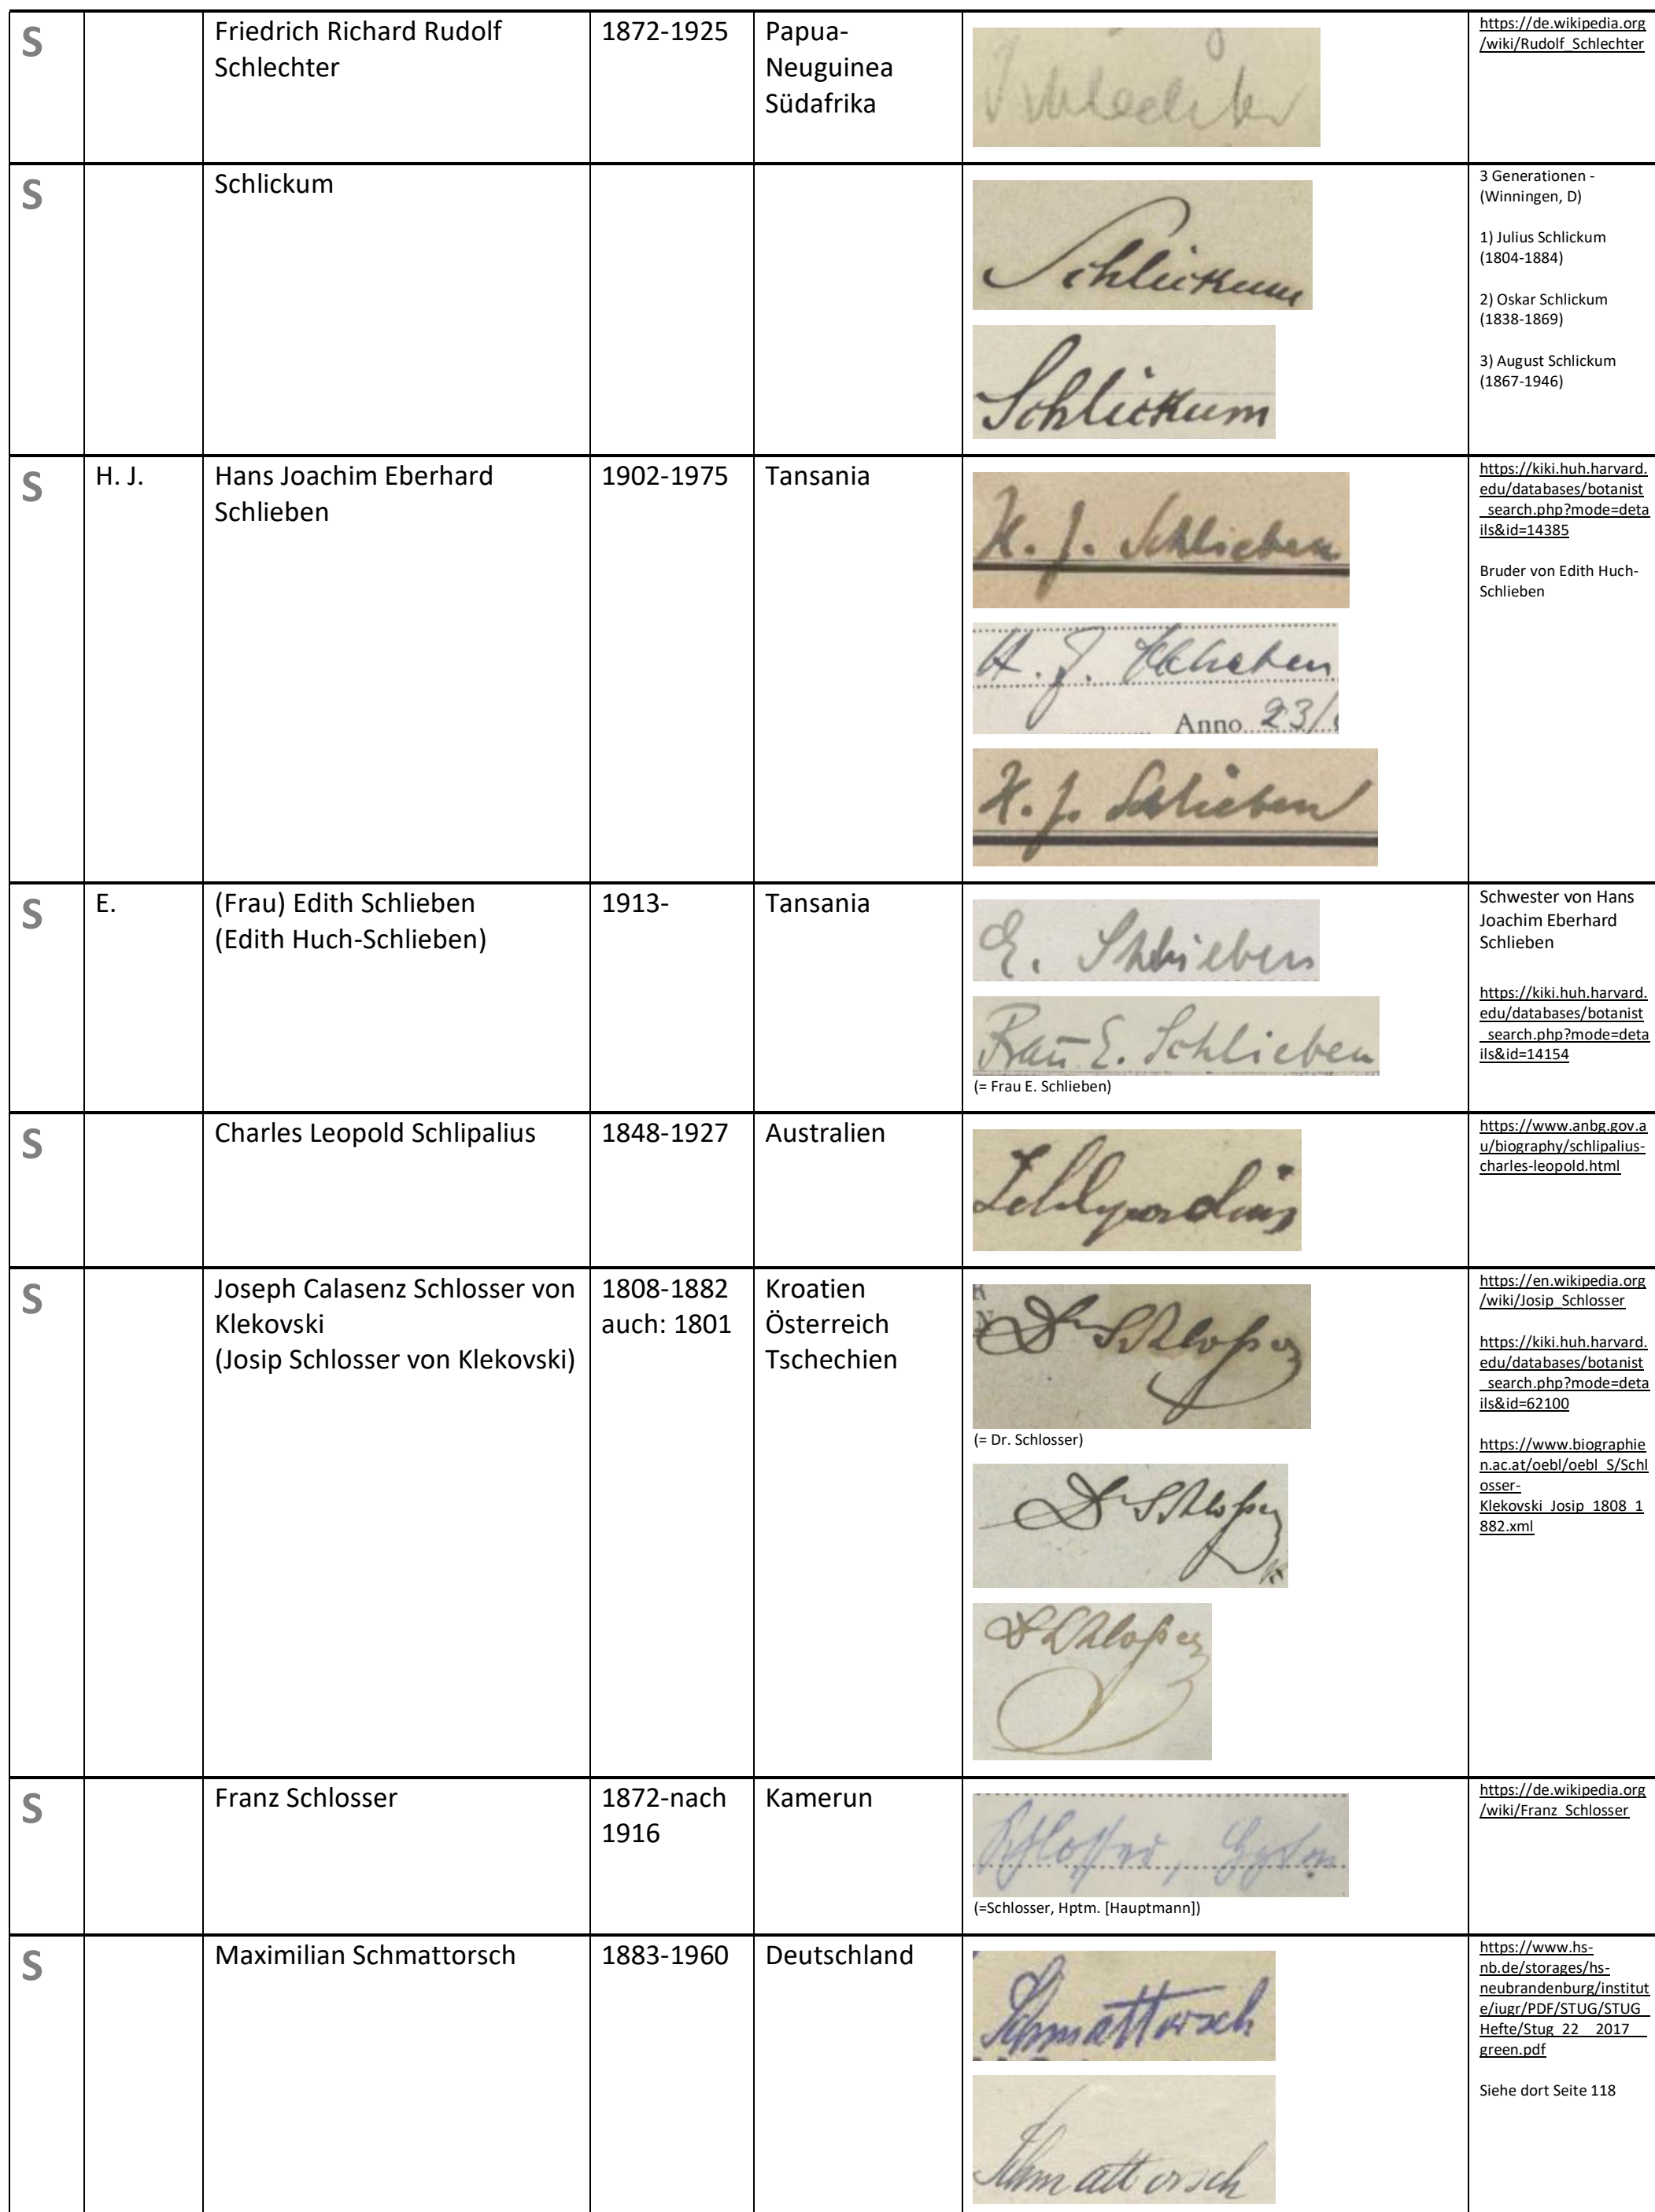 S
Friedrich Richard Rudolf
Schlechter
1872-1925
Papua-
Neuguinea
Südafrika
Schlechter
https://de.wikipedia.org
/wiki/Rudolf_Schlechter
S
Schlickum
Schlickum
Schlickum
3 Generationen -
(Winningen, D)
1) Julius Schlickum
(1804-1884)
2) Oskar Schlickum
(1838-1869)
3) August Schlickum
(1867-1946)
S
H. J.
Hans Joachim Eberhard
Schlieben
1902-1975
Tansania
H. J. Schlieben
H. J. Schlieben
Anno 23/
H. J. Schlieben
https://kiki.huh.harvard.
edu/databases/botanist
_search.php?mode=deta
ils&id=14385
Bruder von Edith Huch-
Schlieben
S
E.
(Frau) Edith Schlieben
(Edith Huch-Schlieben)
1913-
Tansania
E. Schlieben
Frau E. Schlieben
(= Frau E. Schlieben)
Schwester von Hans
Joachim Eberhard
Schlieben
https://kiki.huh.harvard.
edu/databases/botanist
_search.php?mode=deta
ils&id=14154
S
Charles Leopold Schlipalius
1848-1927
Australien
Schlipalius
https://www.anbg.gov.a
u/biography/schlipalius-
charles-leopold.html
S
Joseph Calasenz Schlosser von
Klekovski
(Josip Schlosser von Klekovski)
1808-1882
auch: 1801
Kroatien
Österreich
Tschechien
Dr Schloßer
(= Dr. Schlosser)
Dr Schloßer
Dr Schloßer
https://en.wikipedia.org
/wiki/Josip_Schlosser
https://kiki.huh.harvard.
edu/databases/botanist
_search.php?mode=deta
ils&id=62100
https://www.biographie
n.ac.at/oebl/oebl_S/Schl
osser-
Klekovski_Josip_1808_1
882.xml
S
Franz Schlosser
1872-nach
1916
Kamerun
Schlosser, Hptm.
(=Schlosser, Hptm. [Hauptmann])
https://de.wikipedia.org
/wiki/Franz_Schlosser
S
Maximilian Schmattorsch
1883-1960
Deutschland
Schmattorsch
Schmattorsch
https://www.hs-
nb.de/storages/hs-
neubrandenburg/institut
e/iugr/PDF/STUG/STUG_
Hefte/Stug_22__2017__
green.pdf
Siehe dort Seite 118